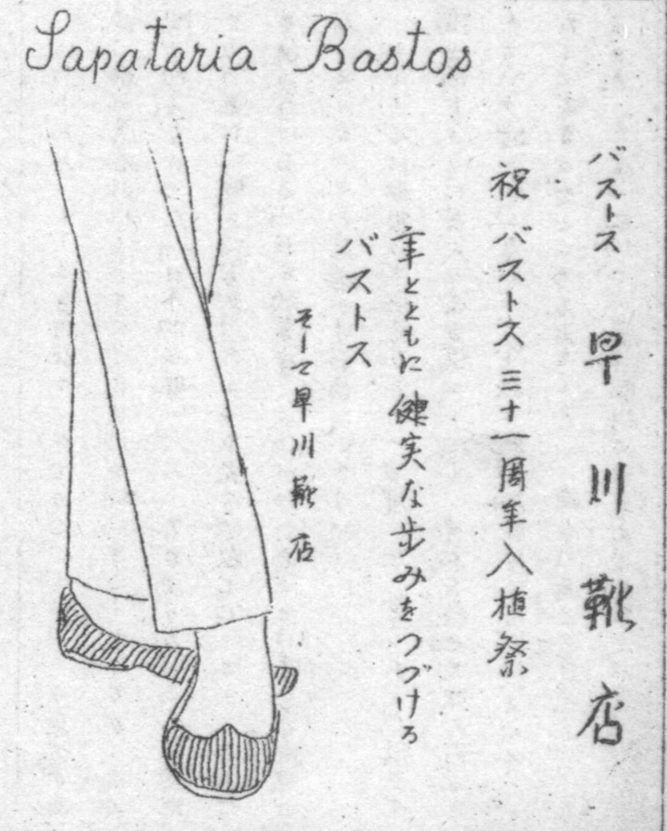 Sapataria Bastos
バストス 早川靴店
祝 バストス 三十一周年入植祭
年とともに健実な歩みをつづける
バストス
そして早川靴店